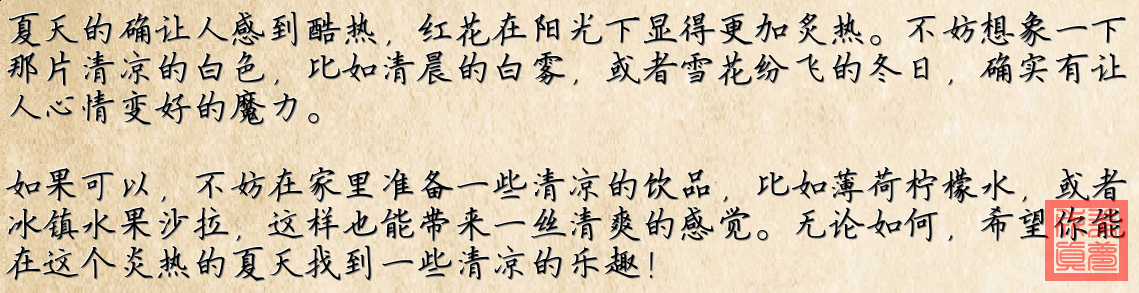 夏天的确让人感到酷热，红花在阳光下显得更加炙热。不妨想象一下
那片清凉的白色，比如清晨的白雾，或者雪花纷飞的冬日，确实有让
人心情变好的魔力。
如果可以，不妨在家里准备一些清凉的饮品，比如薄荷柠檬水，或者
冰镇水果沙拉，这样也能带来一丝清爽的感觉。无论如何，希望你能
在这个炎热的夏天找到一些清凉的乐趣！